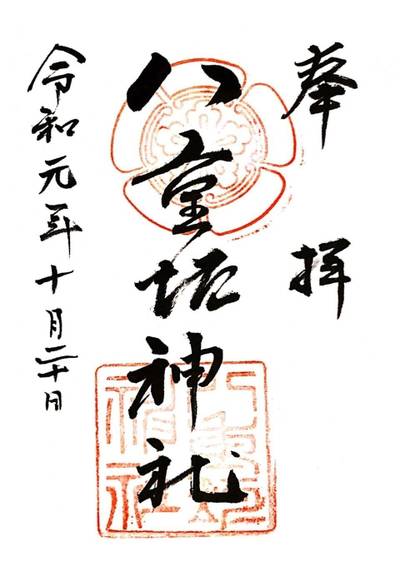 奉拝
八重垣神社
令和元年十月二十日